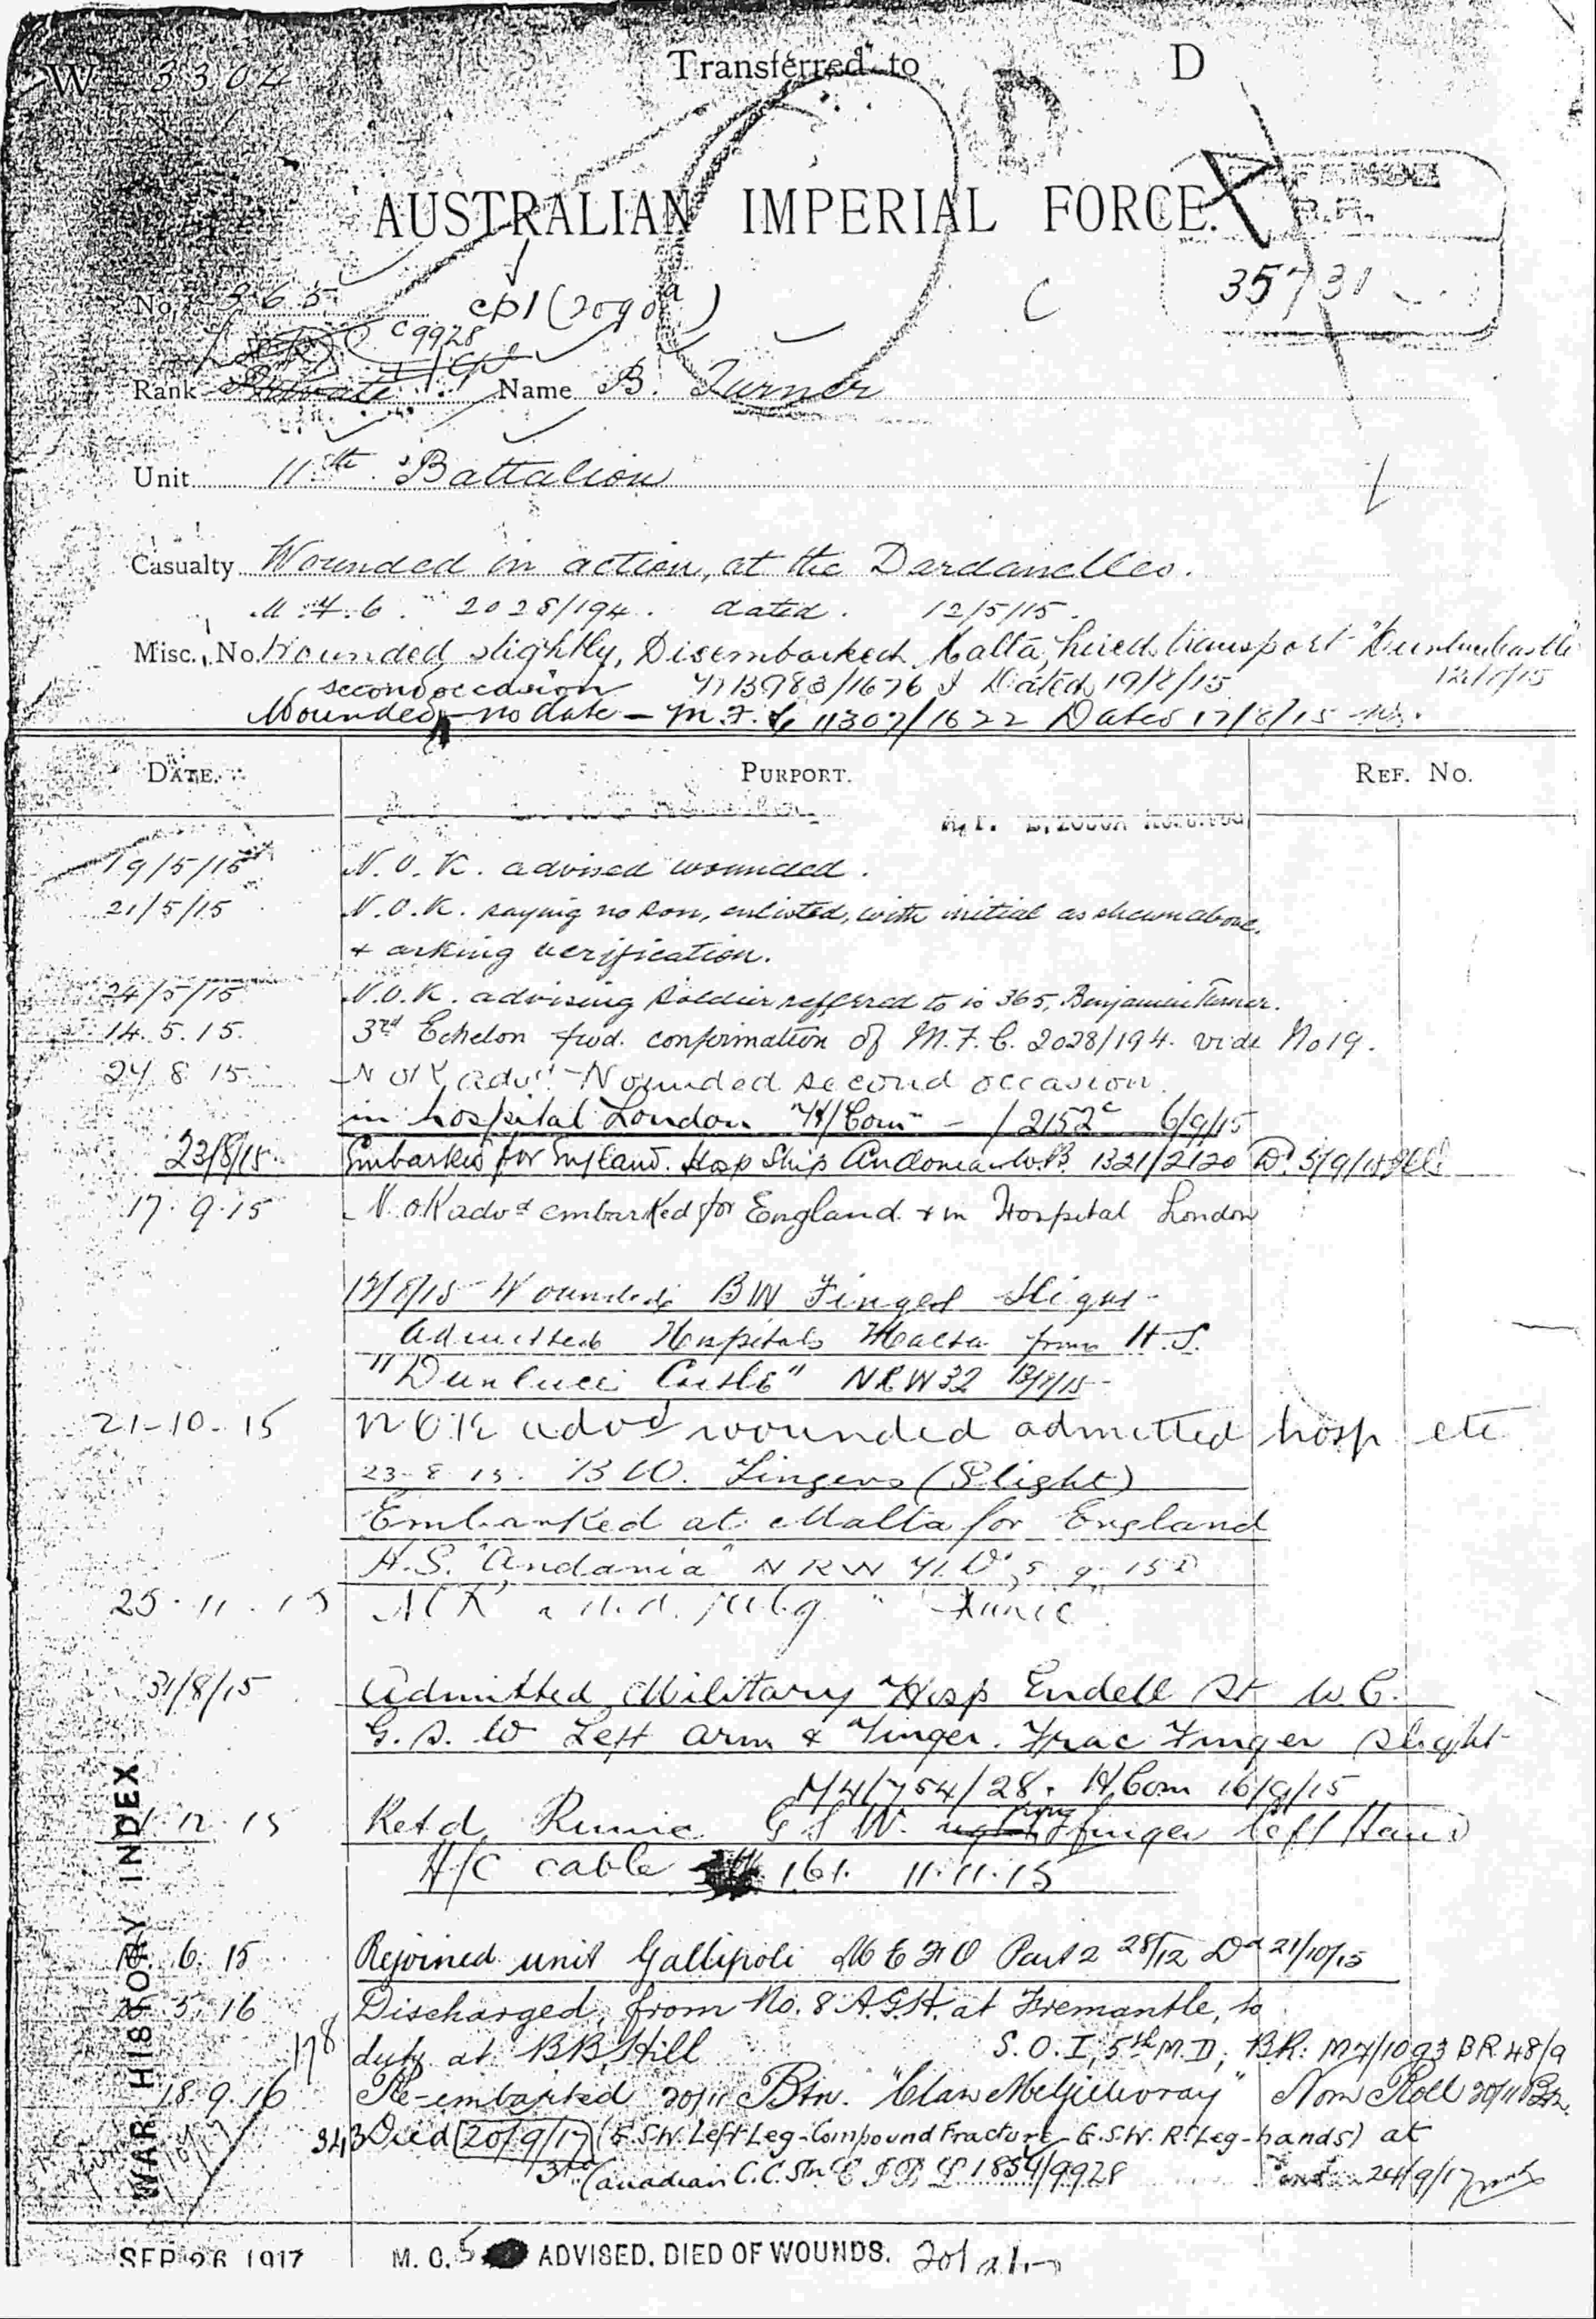 W 3304
Transferred to D
D
AUSTRALIAN IMPERIAL FORCE.
B.R.
35731
No. 365 cpl C
C9928
Rank Private Name B. Turner
Unit 11th Battalion
Casualty Wounded in action, at the Dardanelles.
2028/194. dated. 12/5/15.
Misc., No. Wounded slightly, Disembarked Malta, hired transport
second occasion Dated 19/8/15
Wounded - no date - M.F.C 11307/1622 Dated 17/8/15
DATE. PURPORT. REF. No.
19/5/15 N.O.K. advised wounded.
21/5/15 N.O.K. saying no son, enlisted, with initial as shewn above,
+ asking verification.
24/5/15 N.O.K. advising soldier refferred to is 365, Benjamin Turner.
14.5.15. 3rd Echelon fwd. confirmation of M.F.C. 2028/194. vide No 19.
24 8 15. NOK advd Wounded second occasion.
in hospital London "H/Com" - 12152c 6/9/15
23/8/15. Embarked for England. Hosp Ship Andonia W.B. 1321/2120 Dd 5/9/15
17.9.15 N.oK advd embarked for England + in Hospital London
13/8/15 Wounded BW Finger Slight
Admitted Hospital Malta from H.S.
"Dunluce Castle" NRW32 13/8/15
21-10-15 NOK advd wounded admitted hosp etc
23-8-15. B W. Fingers (Slight)
Embarked at Malta for England
H.S. "Andania" NRW 41. Dd 5.9.15
25.11.15 NOK "Runic"
31/8/15 Admitted Military Hosp Endell St W.C.
G.S.W Left arm & Finger. Frac Finger slight
M4/754/28. H/Com 16/9/15
12.15 Retd Runic G S W. ring finger left Hand
H/C cable 161. 11.11.15
6.15 Rejoined unit Gallipoli Part 2 28/12 Dd 21/10/15
5.16 Discharged, from No. 8 A.G.H. at Fremantle, to
178 duty at BB. Hill S.O.I, 5th M.D; B.R: M7/1093 BR 48/9
18.9.16 Re-embarked 20/11 Btn. "Clan McGillivray" Nom Roll 20/11 Btn.
Died 20/9/17 (G.S.W. Left Leg-Compound Fracture-G.S.W. Rt Leg-hands) at
3rd Canadian C.C. Stn 1854/9928 24/9/17
WAR HISTORY INDEX
SEP 26 1917 M.C.5 ADVISED. DIED OF WOUNDS.